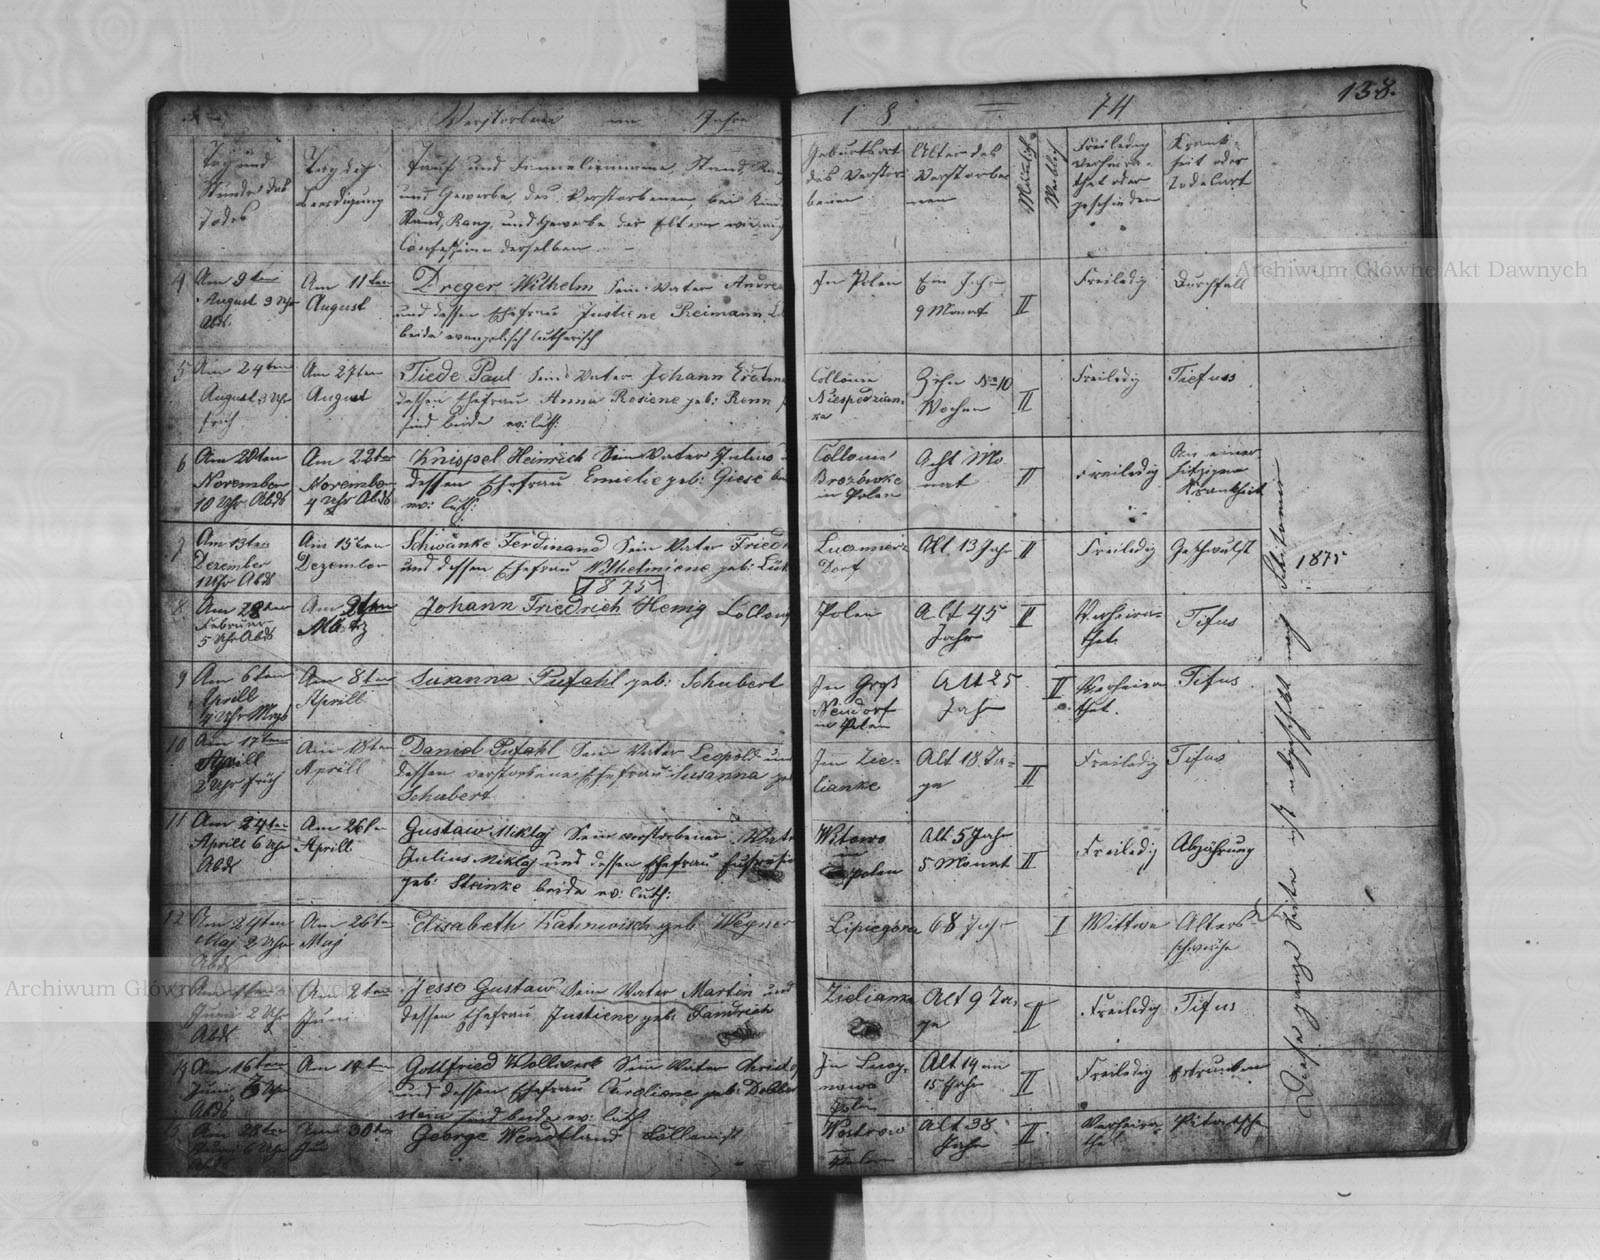 Verstorbene im Jahre 18 = 74
138.
Tag und Stunde des Todes
Tag der Beerdigung
Tauf und Familienname, Stand, Rang
und Gewerbe des Verstorbenen, bei Kind
Stand, Rang, und Gewerbe der Eltern wie auch
Confession derselben
Geburtsort des Verstorbenen
Alter des Verstorbenen
Männlich
Weiblich
Freiledig verheirathet oder geschieden
Krankheit oder Todesart
4 Am 9ten August 3 Uhr Abds.
Am 11ten August
Dreger Wilhelm Sein Vater Andrea
und dessen Ehefrau Justiene Reimann
beide evangelisch lutherisch
In Polen
Ein Jahr 9 Monat
II
Freiledig
Durchfall
5 Am 24ten August 3 Uhr früh
Am 27ten August
Tiede Paul Sein Vater Johann
dessen Ehefrau Anna Rosiene geb: Renn
sind beide ev: luth:
Collonie Niespodzianka
Zehn No 10 Wochen
II
Freiledig
Tiefuss
6 Am 20ten November 10 Uhr Abds
Am 22ten November 4 Uhr Abds
Knispel Heinrich Sein Vater Julius
dessen Ehefrau Emielie geb: Giese
ev: luth:
Collonie Brozówke in Polen
Acht Monat
II
Freiledig
An einer hitzigen Krankheit
7 Am 13ten Dezember 1 Uhr Abds
Am 15ten Dezember
Schwänke Ferdinand Sein Vater Friedr
und dessen Ehefrau Wilhelmiene geb: Lük
1875
Lucmier Dorf
Alt 13 Jahr
II
Freiledig
Geschwulst
1875
8 Am 28ten Februar 5 Uhr Abds
Am 2ten März
Johann Friedrich Henig Collon
Polen
Alt 45 Jahr
II
Verheirathet.
Tifus
9 Am 6ten Aprill 4 Uhr Mrgs
Am 8ten Aprill
Susanna Pufahl geb: Schubert
In Groß Neudorf in Polen
Alt 25 Jahr
II
Verheirathet.
Tifus
10 Am 17ten Aprill 2 Uhr früh
Am 18ten Aprill
Daniel Pufahl Sein Vater Leopold und
dessen verstorbene Ehefrau Susanna geb
Schubert
In Zielianke
Alt 18 Tage
II
Freiledig
Tifus
11 Am 24ten Aprill 6 Uhr Abds
Am 26ten Aprill
Gustaw Miklaj Sein verstorbener Vater
Julius Miklaj und dessen Ehefrau
geb: Steinke beide ev: luth:
Witowo in Polen
Alt 5 Jahr 5 Monat
II
Freiledig
Abzährung
12 Am 24ten Maj 2 Uhr Abds
Am 26ten Maj
Elisabeth Katnwisch geb Wegner
Lipiegóra
68 Jahr
I
Wittwe
Altersschwäche
Juni 2 Uhr Abds
Am 2ten Juni
Jesse Gustaw Sein Vater Martin und
dessen Ehefrau Justiene geb: Bandrich
Zielianke
Alt 9 Tage
II
Freiledig
Tifus
14 Am 16ten Juni 6 Uhr Abds
Am 18ten
Gottfried Wollwerk Sein Vater Christof
und dessen Ehefrau Karoliene geb: Dobber
stein sind beide ev: luth
In Lucynowo Polen
Alt 14 in 15 Jahr
II
Freiledig
ertrunken
15 Am 28ten Juni 6 Uhr Abds
Am 30ten Juni
George Wendtland Collonist
Wostrow Polen
Alt 38 Jahr
II
Verheirathet
Diese ganze Seite ist abgeschickt nach
Archiwum Główne Akt Dawnych
Archiwum Główne Akt Dawnych